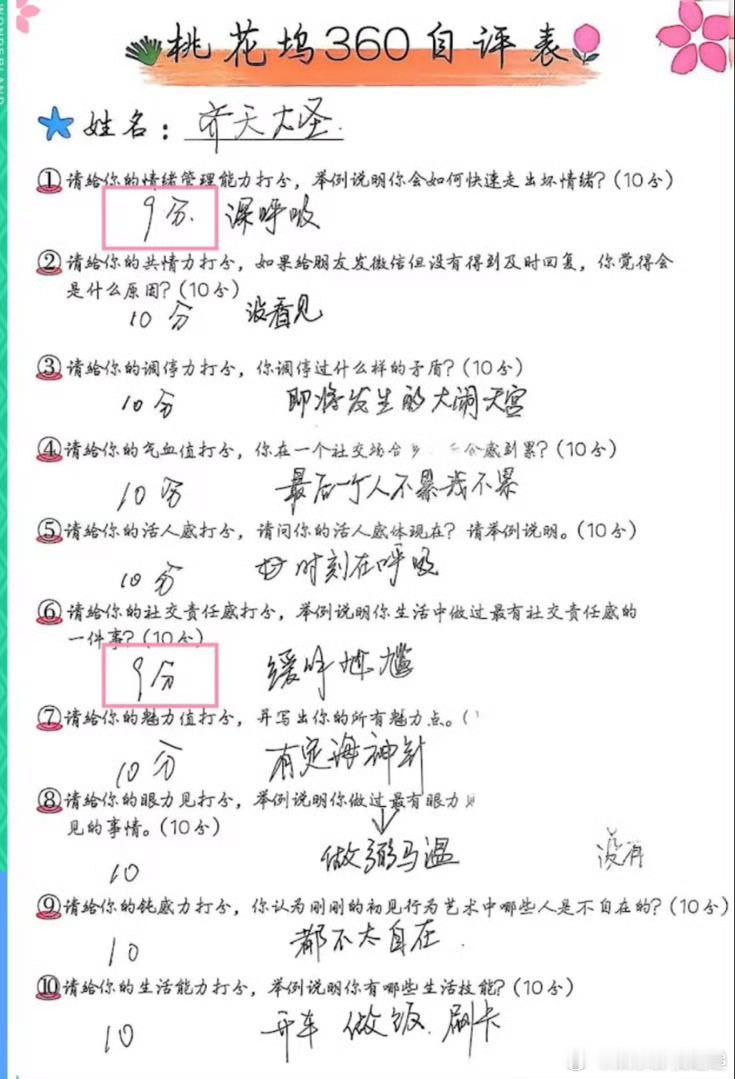 WONDERLAND
桃花坞360自评表
姓名：齐天大圣.
①请给你的情绪管理能力打分，举例说明你会如何快速走出坏情绪？(10分)
9分. 深呼吸
②请给你的共情力打分，如果给朋友发微信但没有得到及时回复，你觉得会
是什么原因？(10分)
10分 没看见
③请给你的调停力打分，你调停过什么样的矛盾？(10分)
10分 即将发生的大闹天宫
④请给你的气血值打分，你在一个社交场合多 会感到累？(10分)
10分 最后一个人不暴我不暴
⑤请给你的活人感打分，请问你的活人感体现在？请举例说明。(10分)
10分 时刻在呼吸
⑥请给你的社交责任感打分，举例说明你生活中做过最有社交责任感的
一件事？(10分)
9分 缓解尴尬
⑦请给你的魅力值打分，并写出你的所有魅力点。(
10分 有定海神针
⑧请给你的眼力见打分，举例说明你做过最有眼力
见的事情。(10分)
10 做弼马温 没有
⑨请给你的钝感力打分，你认为刚刚的初见行为艺术中哪些人是不自在的？(10分)
10 都不太自在.
⑩请给你的生活能力打分，举例说明你有哪些生活技能？(10分)
10 开车 做饭. 刷卡